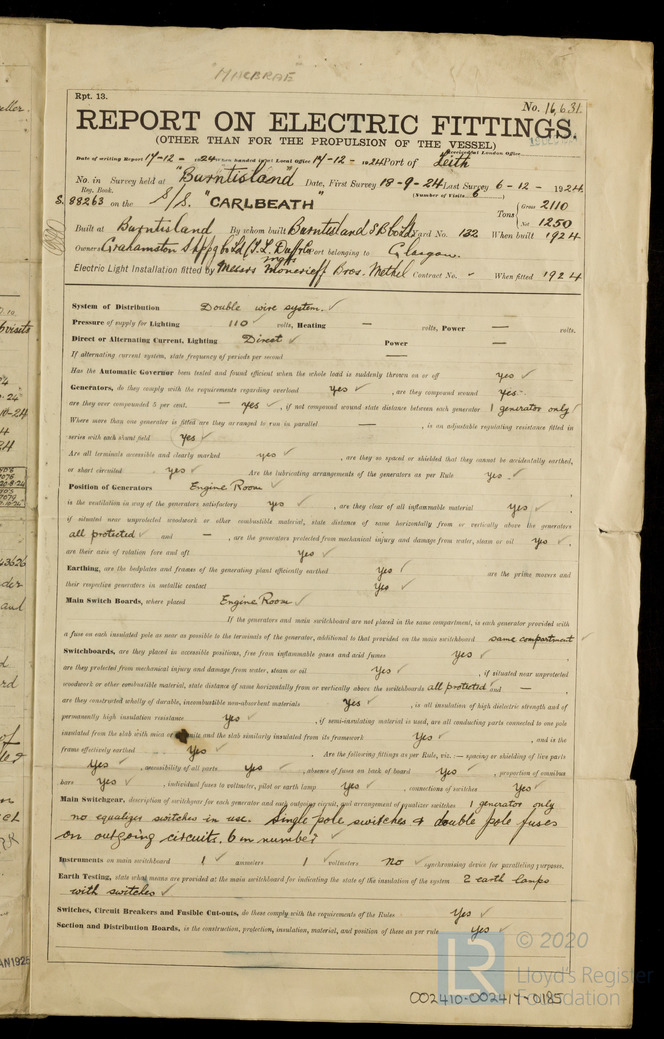 "MACBRAE"
Rpt. 13.
No. 16,631
REPORT ON ELECTRIC FITTINGS.
(OTHER THAN FOR THE PROPULSION OF THE VESSEL)
Received at London Office
Date of writing Report 17-12- 1924 When handed in at Local Office 17-12- 1924 Port of Leith
No. in Survey held at "Burntisland" Date, First Survey 18-9-24 Last Survey 6-12- 1924
Reg. Book. (Number of Visits 6)
S. 88263 on the S/S. "CARLBEATH" Tons Gross 2110
Net 1250
Built at Burntisland By whom built Burntisland S B Co Ltd Yard No. 132 When built 1924
Owners Grahamston Shppg Co Ltd (T. L. Duff & Co mgrs) Port belonging to Glasgow.
Electric Light Installation fitted by Messrs Moncrieff Bros. Methil Contract No. - When fitted 1924
System of Distribution Double wire system. ✓
Pressure of supply for Lighting 110 ✓ volts, Heating — volts, Power — volts.
Direct or Alternating Current, Lighting Direct ✓ Power —
If alternating current system, state frequency of periods per second —
Has the Automatic Governor been tested and found efficient when the whole load is suddenly thrown on or off yes ✓
Generators, do they comply with the requirements regarding overload yes ✓, are they compound wound yes
are they over compounded 5 per cent. — yes ✓, if not compound wound state distance between each generator 1 generator only ✓
Where more than one generator is fitted are they arranged to run in parallel —, is an adjustable regulating resistance fitted in
series with each shunt field yes ✓
Are all terminals accessible and clearly marked yes ✓, are they so spaced or shielded that they cannot be accidentally earthed,
or short circuited yes ✓. Are the lubricating arrangements of the generators as per Rule yes ✓
Position of Generators Engine Room ✓
is the ventilation in way of the generators satisfactory yes ✓, are they clear of all inflammable material yes ✓
if situated near unprotected woodwork or other combustible material, state distance of same horizontally from or vertically above the generators
all protected ✓ and —, are the generators protected from mechanical injury and damage from water, steam or oil yes ✓,
are their axis of rotation fore and aft yes ✓
Earthing, are the bedplates and frames of the generating plant efficiently earthed yes ✓ are the prime movers and
their respective generators in metallic contact yes ✓
Main Switch Boards, where placed Engine Room ✓
If the generators and main switchboard are not placed in the same compartment, is each generator provided with
a fuse on each insulated pole as near as possible to the terminals of the generator, additional to that provided on the main switchboard same compartment ✓
Switchboards, are they placed in accessible positions, free from inflammable gases and acid fumes yes ✓,
are they protected from mechanical injury and damage from water, steam or oil yes ✓, if situated near unprotected
woodwork or other combustible material, state distance of same horizontally from or vertically above the switchboards all protected and —,
are they constructed wholly of durable, incombustible non-absorbent materials yes ✓, is all insulation of high dielectric strength and of
permanently high insulation resistance yes ✓, if semi-insulating material is used, are all conducting parts connected to one pole
insulated from the slab with mica or and the slab similarly insulated from its framework yes ✓, and is the
frame effectively earthed yes ✓. Are the following fittings as per Rule, viz. :— spacing or shielding of live parts
yes ✓, accessibility of all parts yes ✓, absence of fuses on back of board yes ✓, proportion of omnibus
bars yes ✓, individual fuses to voltmeter, pilot or earth lamp yes ✓, connections of switches yes ✓
Main Switchgear, description of switchgear for each generator and each outgoing circuit, and arrangement of equalizer switches 1 generator only
no equalizer switches in use. Single pole switches & double pole fuses
on outgoing circuits. 6 in number ✓
Instruments on main switchboard 1 ✓ ammeters 1 ✓ voltmeters no ✓ synchronising device for paralleling purposes.
Earth Testing, state what means are provided at the main switchboard for indicating the state of the insulation of the system 2 earth lamps
with switches ✓
Switches, Circuit Breakers and Fusible Cut-outs, do these comply with the requirements of the Rules yes ✓
Section and Distribution Boards, is the construction, protection, insulation, material, and position of these as per rule yes ✓
LR © 2020
Lloyd's Register
Foundation
002410-002417-0185